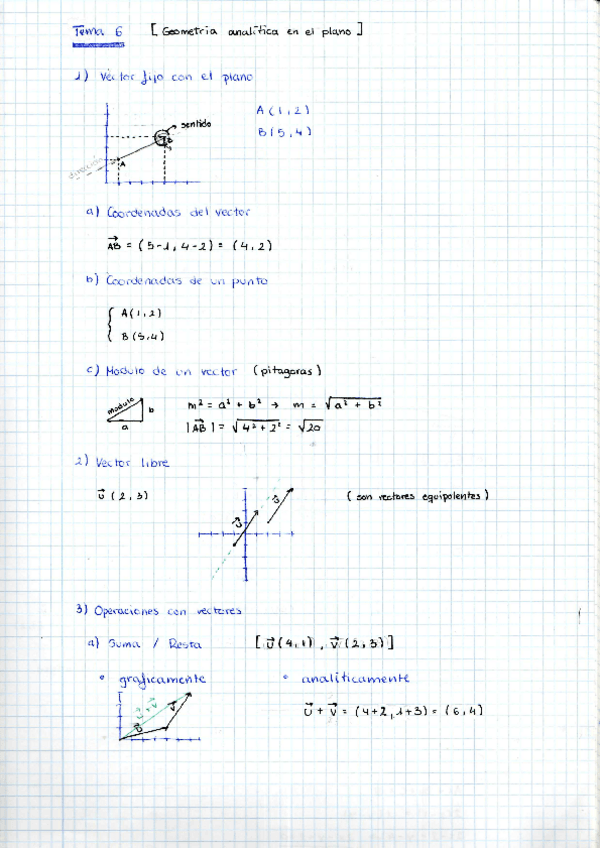 Tema 6 [Geometria analítica en el plano]
1) Vector fijo con el plano
A(1,2)
sentido
B(5,4)
B
A
dirección
a) Coordenadas del vector
AB = (5-1, 4-2) = (4,2)
b) Coordenadas de un punto
A(1,2)
B(5,4)
c) Modulo de un vector (pitagoras)
modulo b m² = a² + b² → m = √a² + b²
a |AB| = √4² + 2² = √20
2) Vector libre
U (2,3) (son vectores equipolentes)
U U
3) Operaciones con vectores
a) Suma / Resta [U(4,1), V(2,3)]
• graficamente • analíticamente
U+V V
U U + V = (4+2, 1+3) = (6,4)